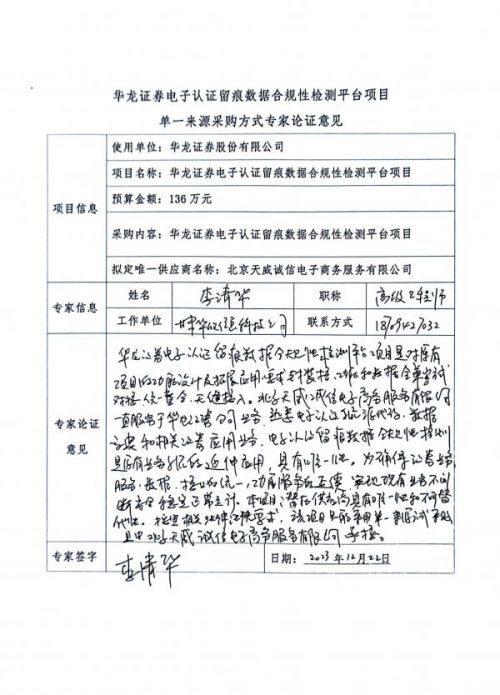 华龙证券电子认证留痕数据合规性检测平台项目
单一来源采购方式专家论证意见
项目信息
使用单位：华龙证券股份有限公司
项目名称：华龙证券电子认证留痕数据合规性检测平台项目
预算金额：136万元
采购内容：华龙证券电子认证留痕数据合规性检测平台项目
拟定唯一供应商名称：北京天威诚信电子商务服务有限公司
专家信息
姓名 李清华 职称 高级工程师
工作单位 联系方式
专家论证
意见
华龙证券电子认证留痕数据合规性检测平台项目是对原有
项目的功能设计及拓展应用，
北京天威诚信电子商务服务有限公司
直服务于华龙证券公司业务，熟悉电子认证系统源代码、数据
和相关证券应用业务，电子认证留痕数据合规性检测
是原有业务系统的延伸应用，具有唯一性。为确保证券业务
服务、数据、接口的统一，功能服务的延续，
断安全稳定正常运行。本项目潜在供应商具有唯一性和不可替
代性。
北京天威诚信电子商务服务有限公司承接。
专家签字 李清华 日期：2023年12月22日